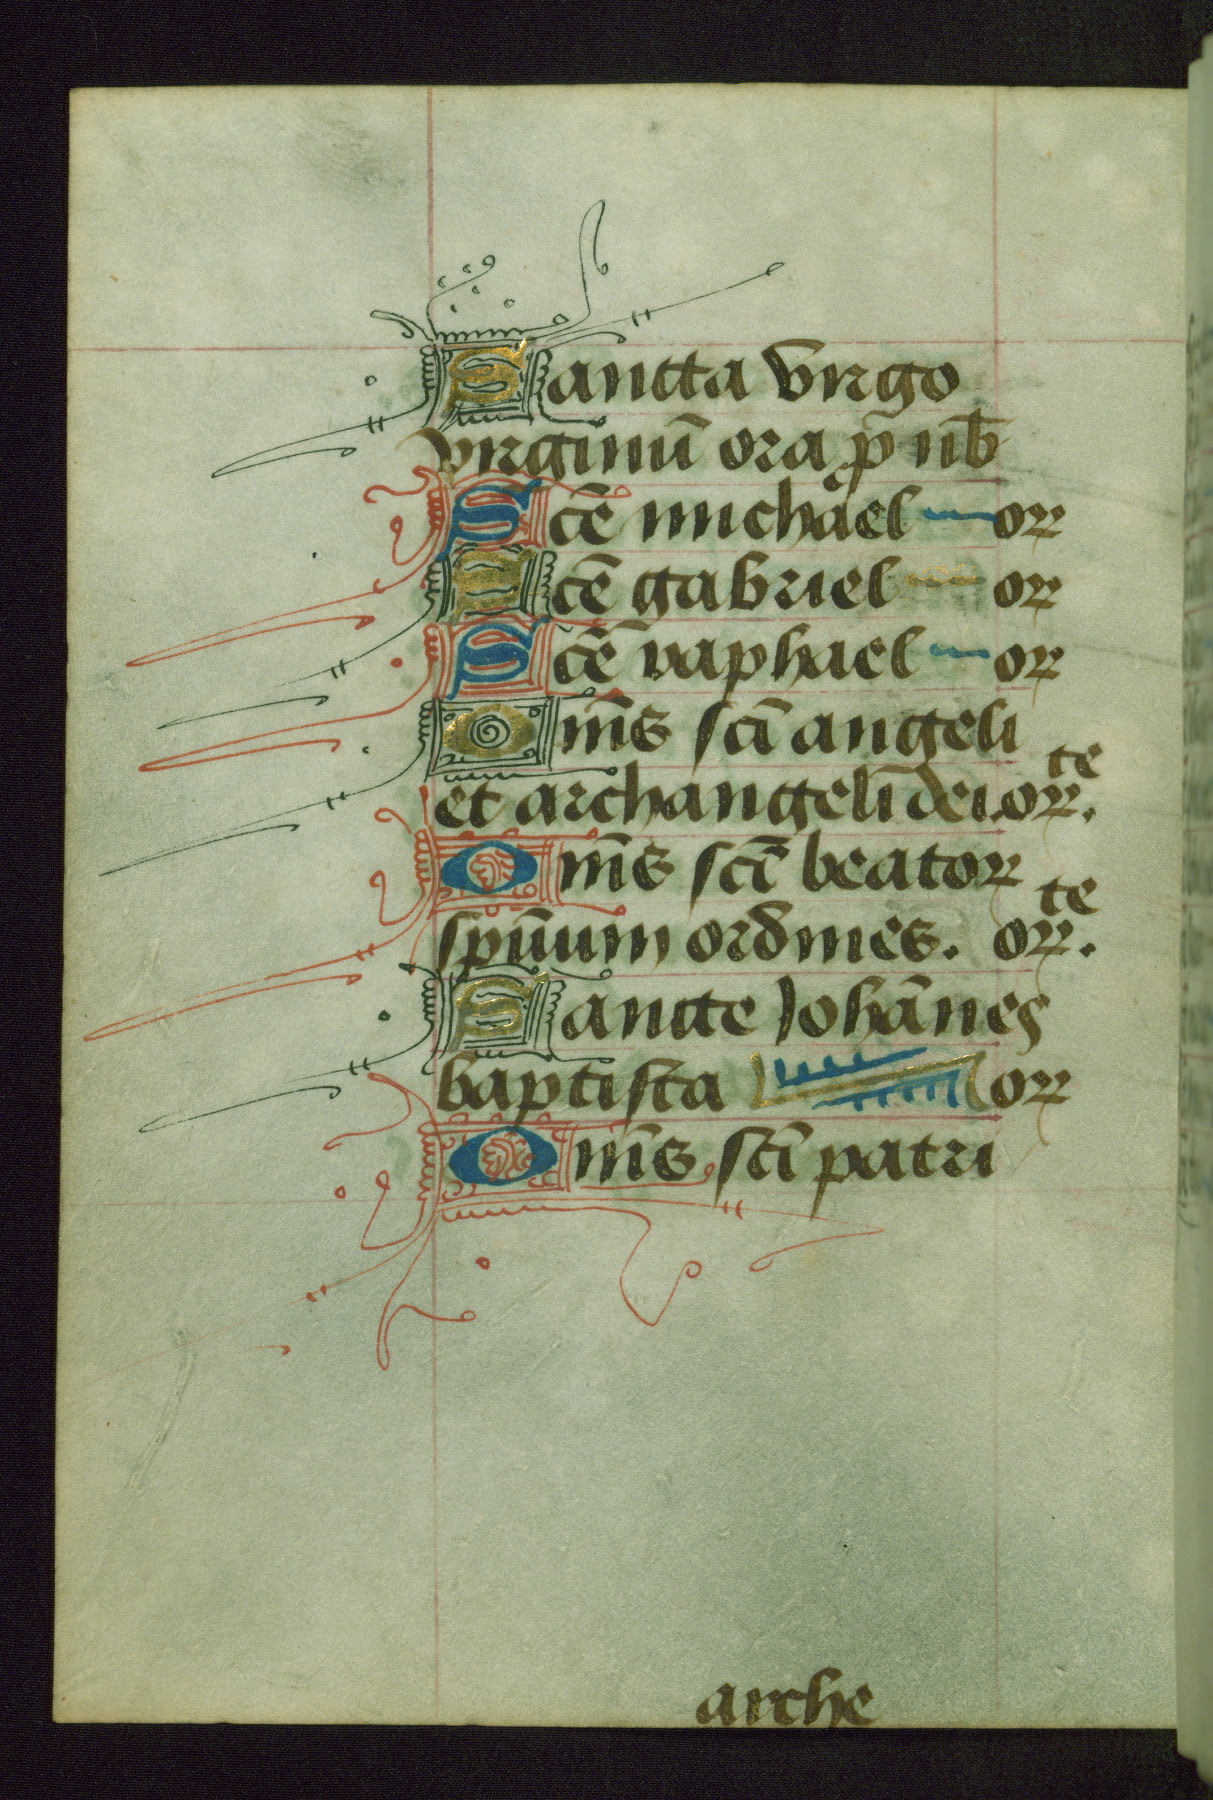 Sancta virgo
virginū ora p̄ nob̄
Scē michael orꝝ
Scē gabriel orꝝ
Scē raphael orꝝ
Om̄s scī angeli
et archangeli dei. orꝝte.
Om̄s scī beatoꝝ
spūum ordines. orꝝte.
Sancte Johānes
baptista orꝝ
Om̄s scī patri
arche